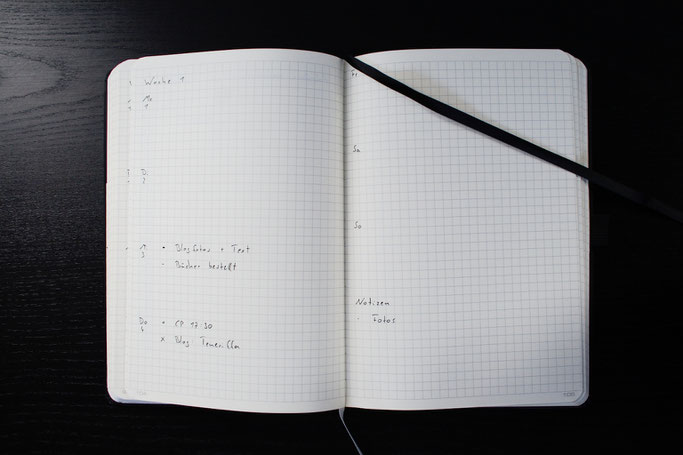 Woche 1
Mo
1
Di
2
Mi
3
• Blogfotos + Text
- Bücher bestellt
Do
4
• CP 17:30
x Blog: Teneriffa
Fr
Sa
So
Notizen
- Fotos